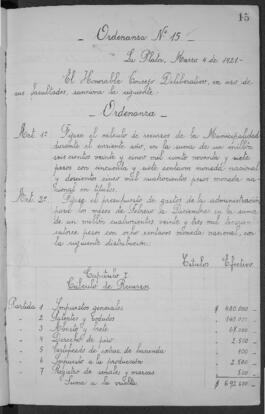 15
Ordenanza Nº 15
La Plata, Marzo 4 de 1921.-
El Honorable Concejo Deliberativo, en uso de
sus facultades, sanciona la siguiente:
Ordenanza
Art. 1º Fíjase el cálculo de recursos de la Municipalidad
durante el corriente año, en la suma de un millón
seiscientos veinte y cinco mil ciento noventa y siete
pesos con cincuenta y siete centavos moneda nacional
y doscientos cinco mil cuatrocientos pesos moneda na-
cional en títulos.
Art. 2º Fíjase el presupuesto de gastos de la administración
para los meses de Febrero a Diciembre en la suma
de un millón cuatrocientos veinte y tres mil
pesos con ocho centavos moneda nacional, con
la siguiente distribución:
Títulos Efectivo
Capítulo I
Cálculo de Recursos
Partida 1 Impuestos generales $ 480.000
" 2 Patentes y rodados
" 3 Abasto y
" 4 Derecho de piso " 2.500
" 5
" 6 Impuesto a la producción
" 7 Registro de señales y marcas
Suma a la vuelta $ 692.600